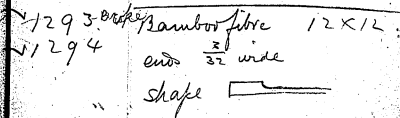 ✓1293 Broke Bamboo fibre 12 x 12.
✓1294 ends 3/32 wide
shape